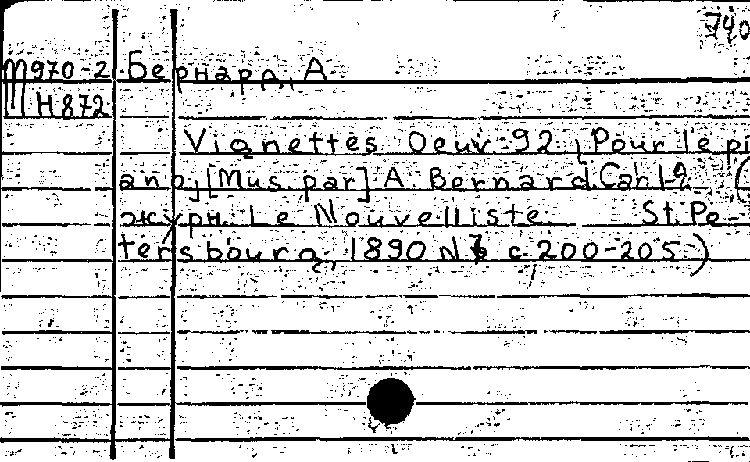 740
M970-2 Бернард, А.
Н872
Vignettes Oeuv. 92, Pour le pi
ano, [Mus. par] A. Bernard. Cah 1-2 (
журн. Le Nouvelliste St. Pe-
tersbourg, 1890 N с. 200-205.)